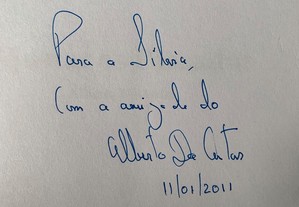 Para a Silvia,
Com a amizade do
Alberto De
11/01/2011